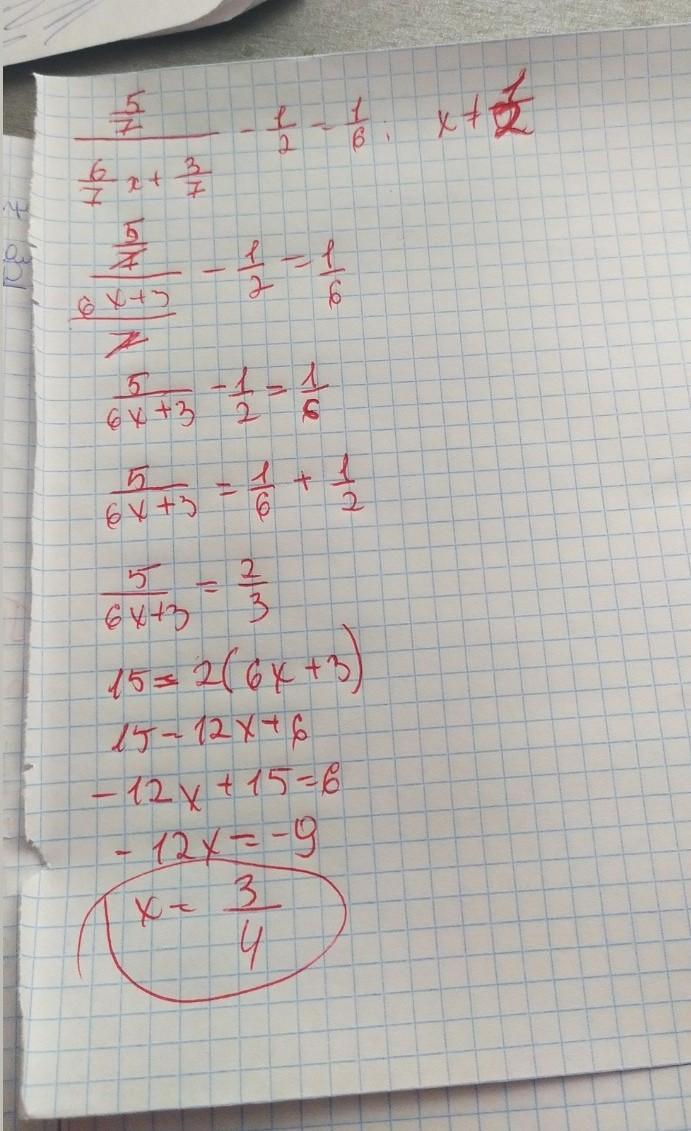 (5/7)/(6/7 x + 3/7) - 1/2 = 1/6; x ≠ 1/2
(5/7)/((6x+3)/7) - 1/2 = 1/6
5/(6x+3) - 1/2 = 1/6
5/(6x+3) = 1/6 + 1/2
5/(6x+3) = 2/3
15 = 2(6x+3)
15 = 12x+6
-12x+15=6
-12x=-9
x = 3/4